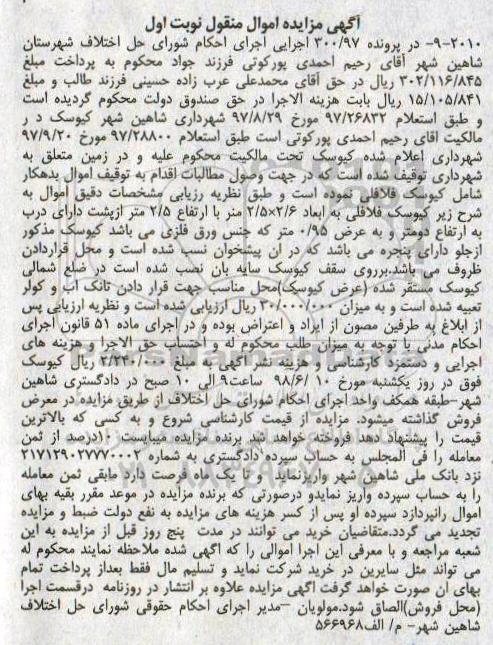 آگهی مزایده اموال منقول نوبت اول
۹-۲۰۱۰- در پرونده ۳۰۰/۹۷ اجرایی اجرای احکام شورای حل اختلاف شهرستان
شاهین شهر آقای رحیم احمدی پورکوتی فرزند جواد محکوم به پرداخت مبلغ
۳۰۲/۱۱۶/۸۴۵ ریال در حق آقای محمدعلی عرب زاده حسینی فرزند طالب و مبلغ
۱۵/۱۰۵/۸۴۱ ریال بابت هزینه الاجرا در حق صندوق دولت محکوم گردیده است
و طبق استعلام ۹۷/۲۶۸۳۲ مورخ ۹۷/۸/۲۹ شهرداری شاهین شهر کیوسک د ر
مالکیت اقای رحیم احمدی پورکوتی است طبق استعلام ۹۷/۲۸۸۰۰ مورخ ۹۷/۹/۲۰
شهرداری اعلام شده کیوسک تحت مالکیت محکوم علیه و در زمین متعلق به
شهرداری توقیف شده است که در جهت وصول مطالبات اقدام به توقیف اموال بدهکار
شامل کیوسک فلافلی نموده است و طبق نظریه رزیابی مشخصات دقیق اموال به
شرح زیر کیوسک فلافلی به ابعاد ۲/۵×۲/۶ متر با ارتفاع ۲/۵ متر ازپشت دارای درب
به ارتفاع دومتر و به عرض ۰/۹۵ متر که جنس ورق فلزی می باشد کیوسک مذکور
ازجلو دارای پنجره می باشد که در ان پیشخوان نسب شده است و محل قراردادن
ظروف می باشد.برروی سقف کیوسک سایه بان نصب شده است در ضلع شمالی
کیوسک مستقر شده (عرض کیوسک)محل مناسب جهت قرار دادن تانک اب و کولر
تعبیه شده است و به میزان ۳۰/۰۰۰/۰۰۰ ریال ارزیابی شده است و نظریه ارزیابی پس
از ابلاغ به طرفین مصون از ایراد و اعتراض بوده و در اجرای ماده ۵۱ قانون اجرای
احکام مدنی با توجه به میزان طلب محکوم له و احتساب حق الاجرا و هزینه های
اجرایی و دستمزد کارشناسی و هزینه نشر اگهی به مبلغ ریال کیوسک
فوق در روز یکشنبه مورخ ۱۰ /۹۸/۶ ساعت۹ الی ۱۰ صبح در دادگستری شاهین
شهر-طبقه همکف واحد اجرای احکام شورای حل اختلاف از طریق مزایده در معرض
فروش گذاشته میشود. مزایده از قیمت کارشناسی شروع و به کسی که بالاترین
قیمت را پیشنهاد دهد فروخته خواهد شد برنده مزایده میبایست ۱۰درصد از ثمن
معامله را فی المجلس به حساب سپرده دادگستری به شماره ۲۱۷۱۲۹۰۲۷۷۷۰۰۰۲
نزد بانک ملی شاهین شهر واریزنماید و تا یک ماه فرصت دارد مابقی ثمن معامله
را به حساب سپرده واریز نمایدو درصورتی که برنده مزایده در موعد مقرر بقیه بهای
اموال رانپردازد سپرده او پس از کسر هزینه های مزایده به نفع دولت ضبط و مزایده
تجدید می گردد.متقاضیان خرید می توانند در مدت پنج روز قبل از مزایده به این
شعبه مراجعه و با معرفی این اجرا اموالی را که اگهی شده ملاحظه نمایند محکوم له
می تواند مثل سایرین در خرید شرکت نماید و تسلیم مال فقط بعداز پرداخت تمام
بهای ان صورت خواهد گرفت اگهی مزایده علاوه بر انتشار در روزنامه درقسمت اجرا
(محل فروش)الصاق شود.مولویان –مدیر اجرای احکام حقوقی شورای حل اختلاف
شاهین شهر- م/ الف۵۶۶۹۶۸